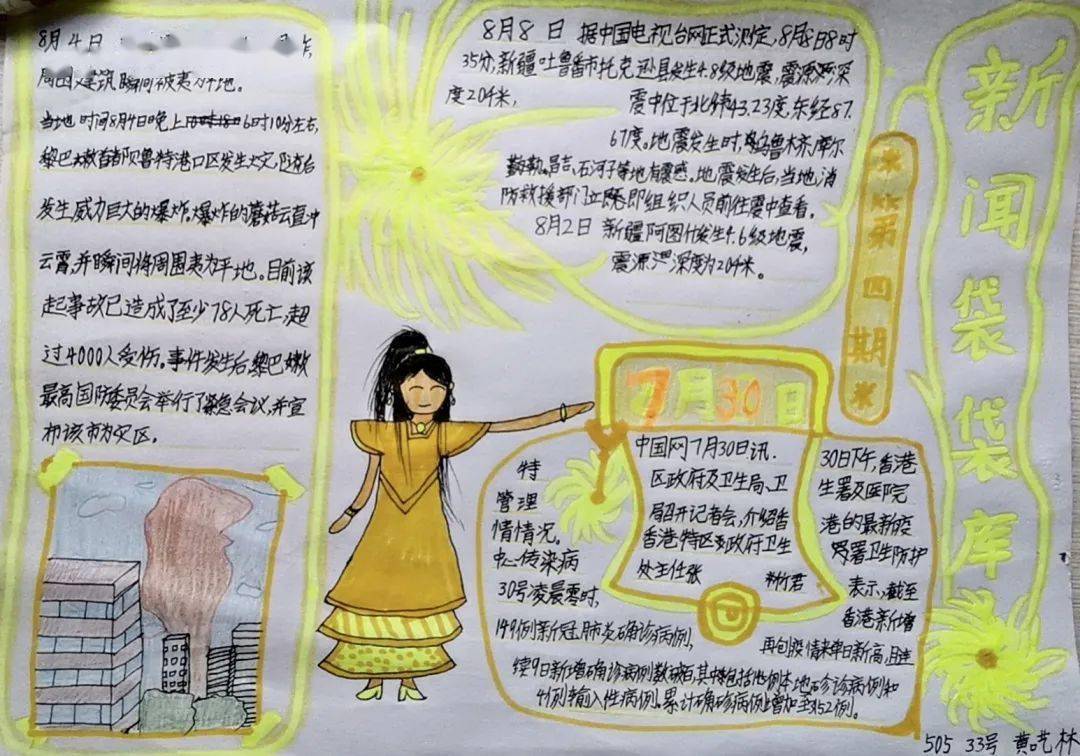 8月4日
周围建筑瞬间被夷为平地。
当地时间8月4日晚上6时10分左右,
黎巴嫩首都贝鲁特港口区发生火灾,随后
发生威力巨大的爆炸,爆炸的蘑菇云直冲
云霄,并瞬间将周围夷为平地。目前该
起事故已造成了至少78人死亡,超
过4000人受伤。事件发生后,黎巴嫩
最高国防委员会举行了紧急会议,并宣
布该市为灾区。
8月8日 据中国电视台网正式测定,8月8日8时
35分,新疆吐鲁番市托克逊县发生4.8级地震,震源深
度20千米,
震中位于北纬43.23度,东经87.
67度。地震发生时,乌鲁木齐,库尔
勒,昌吉、石河子等地有震感。地震发生后,当地消
防救援部门立即组织人员前往震中查看。
8月2日 新疆阿图什发生4.6级地震,
震源深度为20千米。
新闻袋袋库
第四期
7月30日
中国网7月30日讯.
30日下午,香港
特
区政府及卫生局、卫
生署及医院
管理
局召开记者会,介绍香
港的最新疫
情情况。
香港特区政府卫生
署卫生防护
中心传染病
处主任张竹君
表示,截至
30号凌晨零时,
香港新增
149例新冠肺炎确诊病例,
再创疫情单日新高,且连
续9日新增确诊病例数破百,其中包括
例本地确诊病例和
例输入性病例。累计确诊病例增加至
例。
505 33号 黄艺林